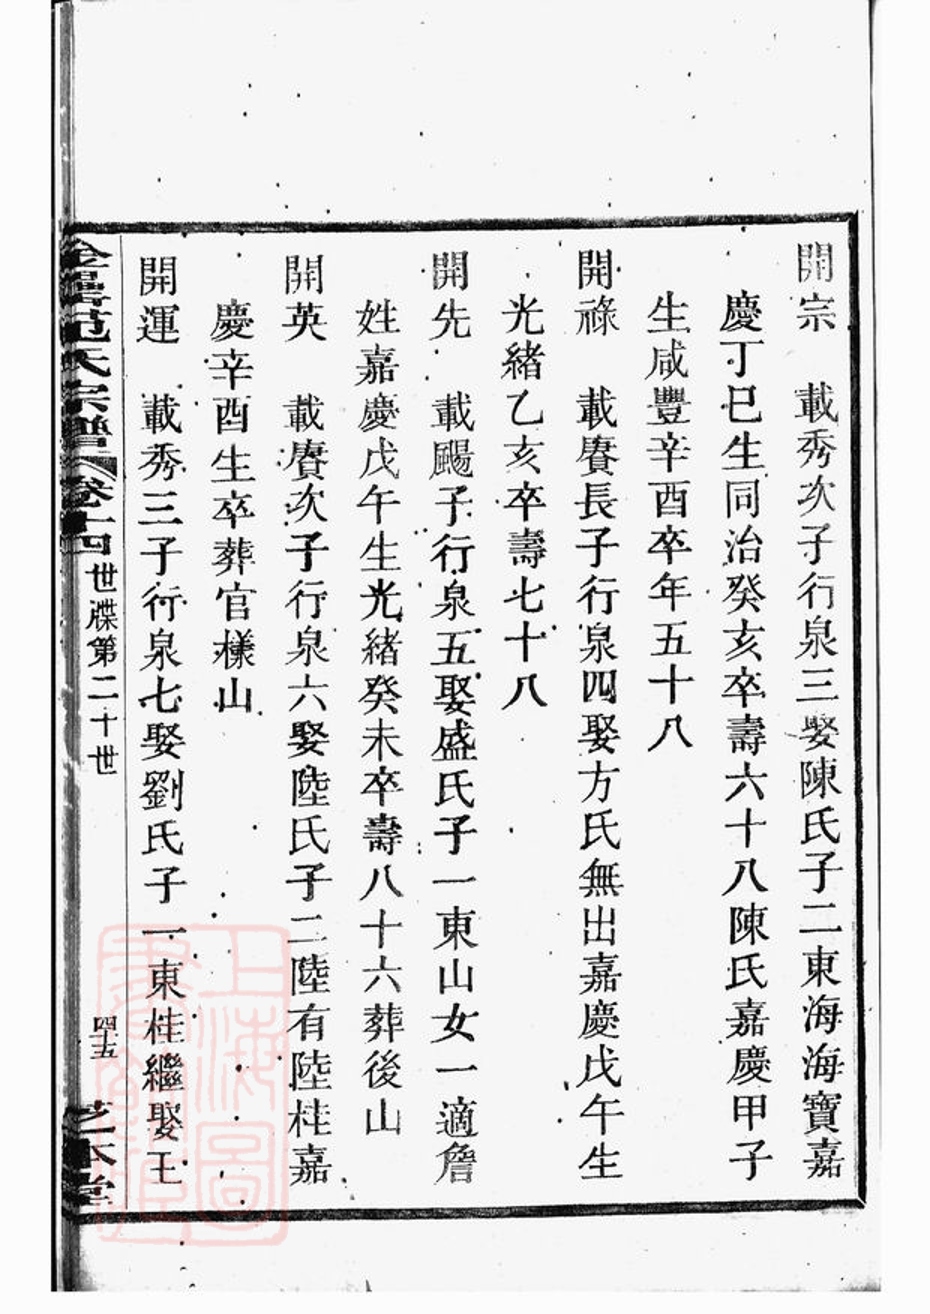 開宗　載秀次子行泉三娶陳氏子二東海海寶嘉
慶丁巳生同治癸亥卒壽六十八陳氏嘉慶甲子
生咸豐辛酉卒年五十八
開祿　載賡長子行泉四娶方氏無出嘉慶戊午生
光緒乙亥卒壽七十八
開先　載颺子行泉五娶盛氏子一東山女一適詹
姓嘉慶戊午生光緒癸未卒壽八十六葬後山
開英　載賡次子行泉六娶陸氏子二陸有陸桂嘉
慶辛酉生卒葬官樣山
開運　載秀三子行泉七娶劉氏子一東桂繼娶王
范氏宗譜　卷十四　世牒第二十世　四十五　本堂
上海圖